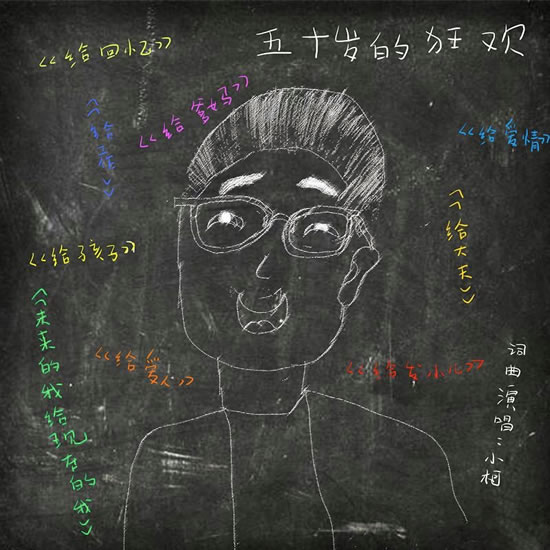 五十岁的狂欢
《给回忆》
《给爹妈》
《给爱情》
《给大天》
《给孩子》
《未来的我给现在的我》
《给爱人》
《给发小儿》
词曲演唱:小柯